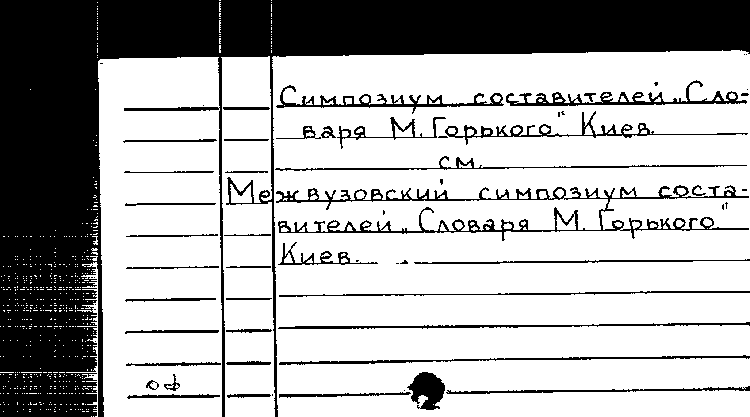 Симпозиум составителей „Сло-
варя М. Горького“ Киев.
см.
Межвузовский симпозиум соста-
вителей „Словаря М. Горького“
Киев.
оф